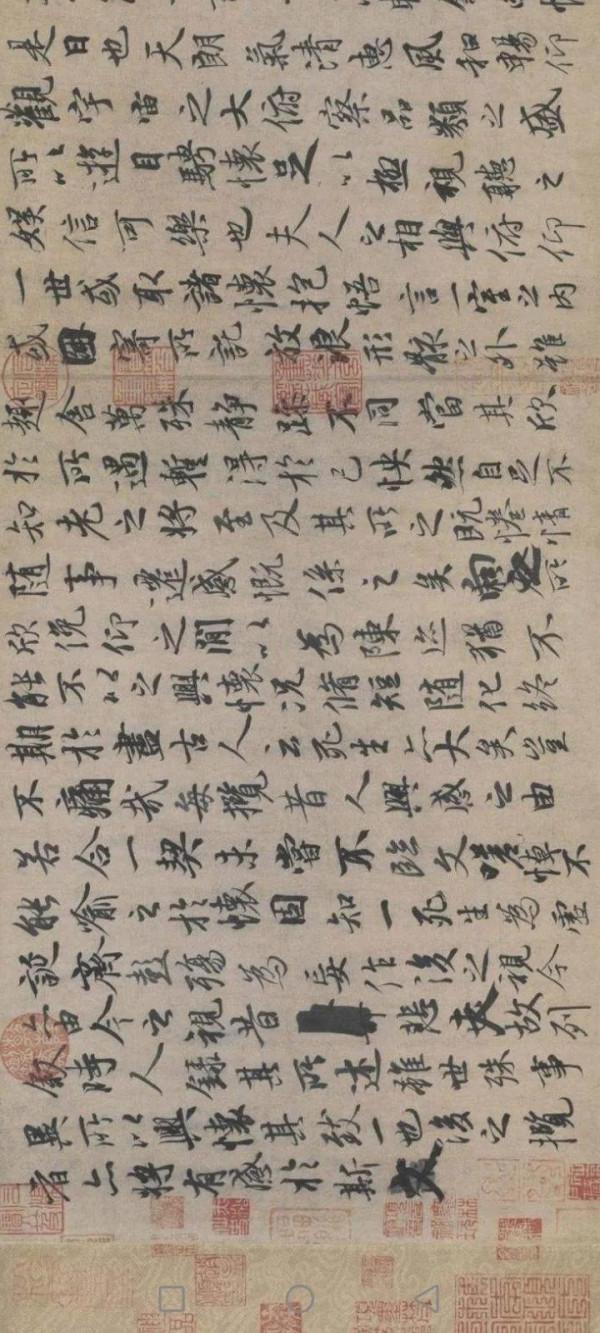 是日也天朗氣清惠風和暢仰
觀宇宙之大俯察品類之盛
所以遊目騁懷足以極視聽之
娛信可樂也夫人之相與俯仰
一世或取諸懷抱悟言一室之內
或因寄所託放浪形骸之外雖
趣舍萬殊靜躁不同當其欣
於所遇暫得於己怏然自足不
知老之將至及其所之既惓情
隨事遷感慨係之矣向之所
欣俛仰之閒以為陳迹猶不
能不以之興懷況脩短隨化終
期於盡古人云死生亦大矣豈
不痛哉每攬昔人興感之由
若合一契未嘗不臨文嗟悼不
能喻之於懷固知一死生為虛
誕齊彭殤為妄作後之視今
亦由今之視昔悲夫故列
敘時人錄其所述雖世殊事
異所以興懷其致一也後之攬
者亦將有感於斯文